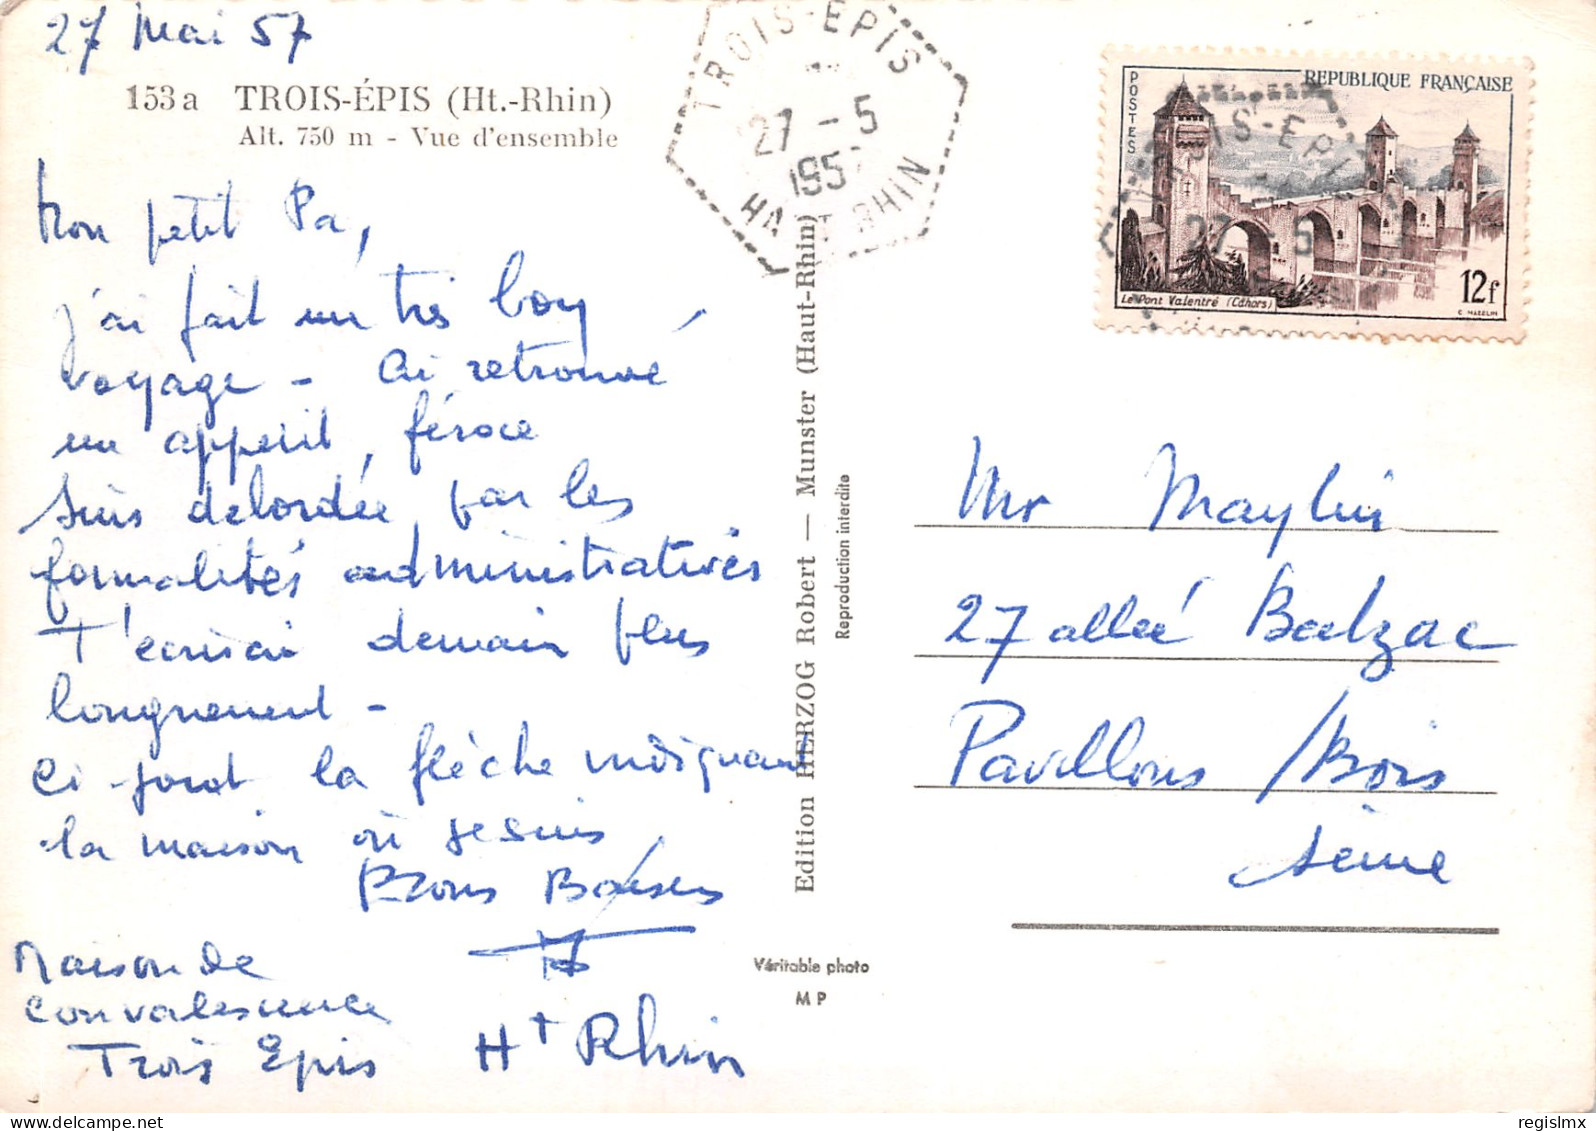 27 Mai 57
153a TROIS-ÉPIS (Ht.-Rhin)
Alt. 750 m - Vue d'ensemble
Mon petit Pa,
j'ai fait un très bon
voyage - Ai retrouvé
un appétit, féroce
Suis debordée par les
formalités administratives
T'écrirai demain plus
longuement -
Ci-joint la flèche indiquant
la maison où je suis,
Bons Baisers
Maison de
convalescence
Trois Epis Ht Rhin
TROIS-EPIS
27 -5
1957
HAUT RHIN
Edition HERZOG Robert — Munster (Haut-Rhin)
Reproduction interdite
Véritable photo
MP
POSTES
REPUBLIQUE FRANÇAISE
TROIS-EPIS
27 - 5
Le Pont Valentré (Cahors)
12f
C. MAZELIN
Mr Maylin
27 allée Balzac
Pavillons /Bois
Seine
regislmx
www.delcampe.net